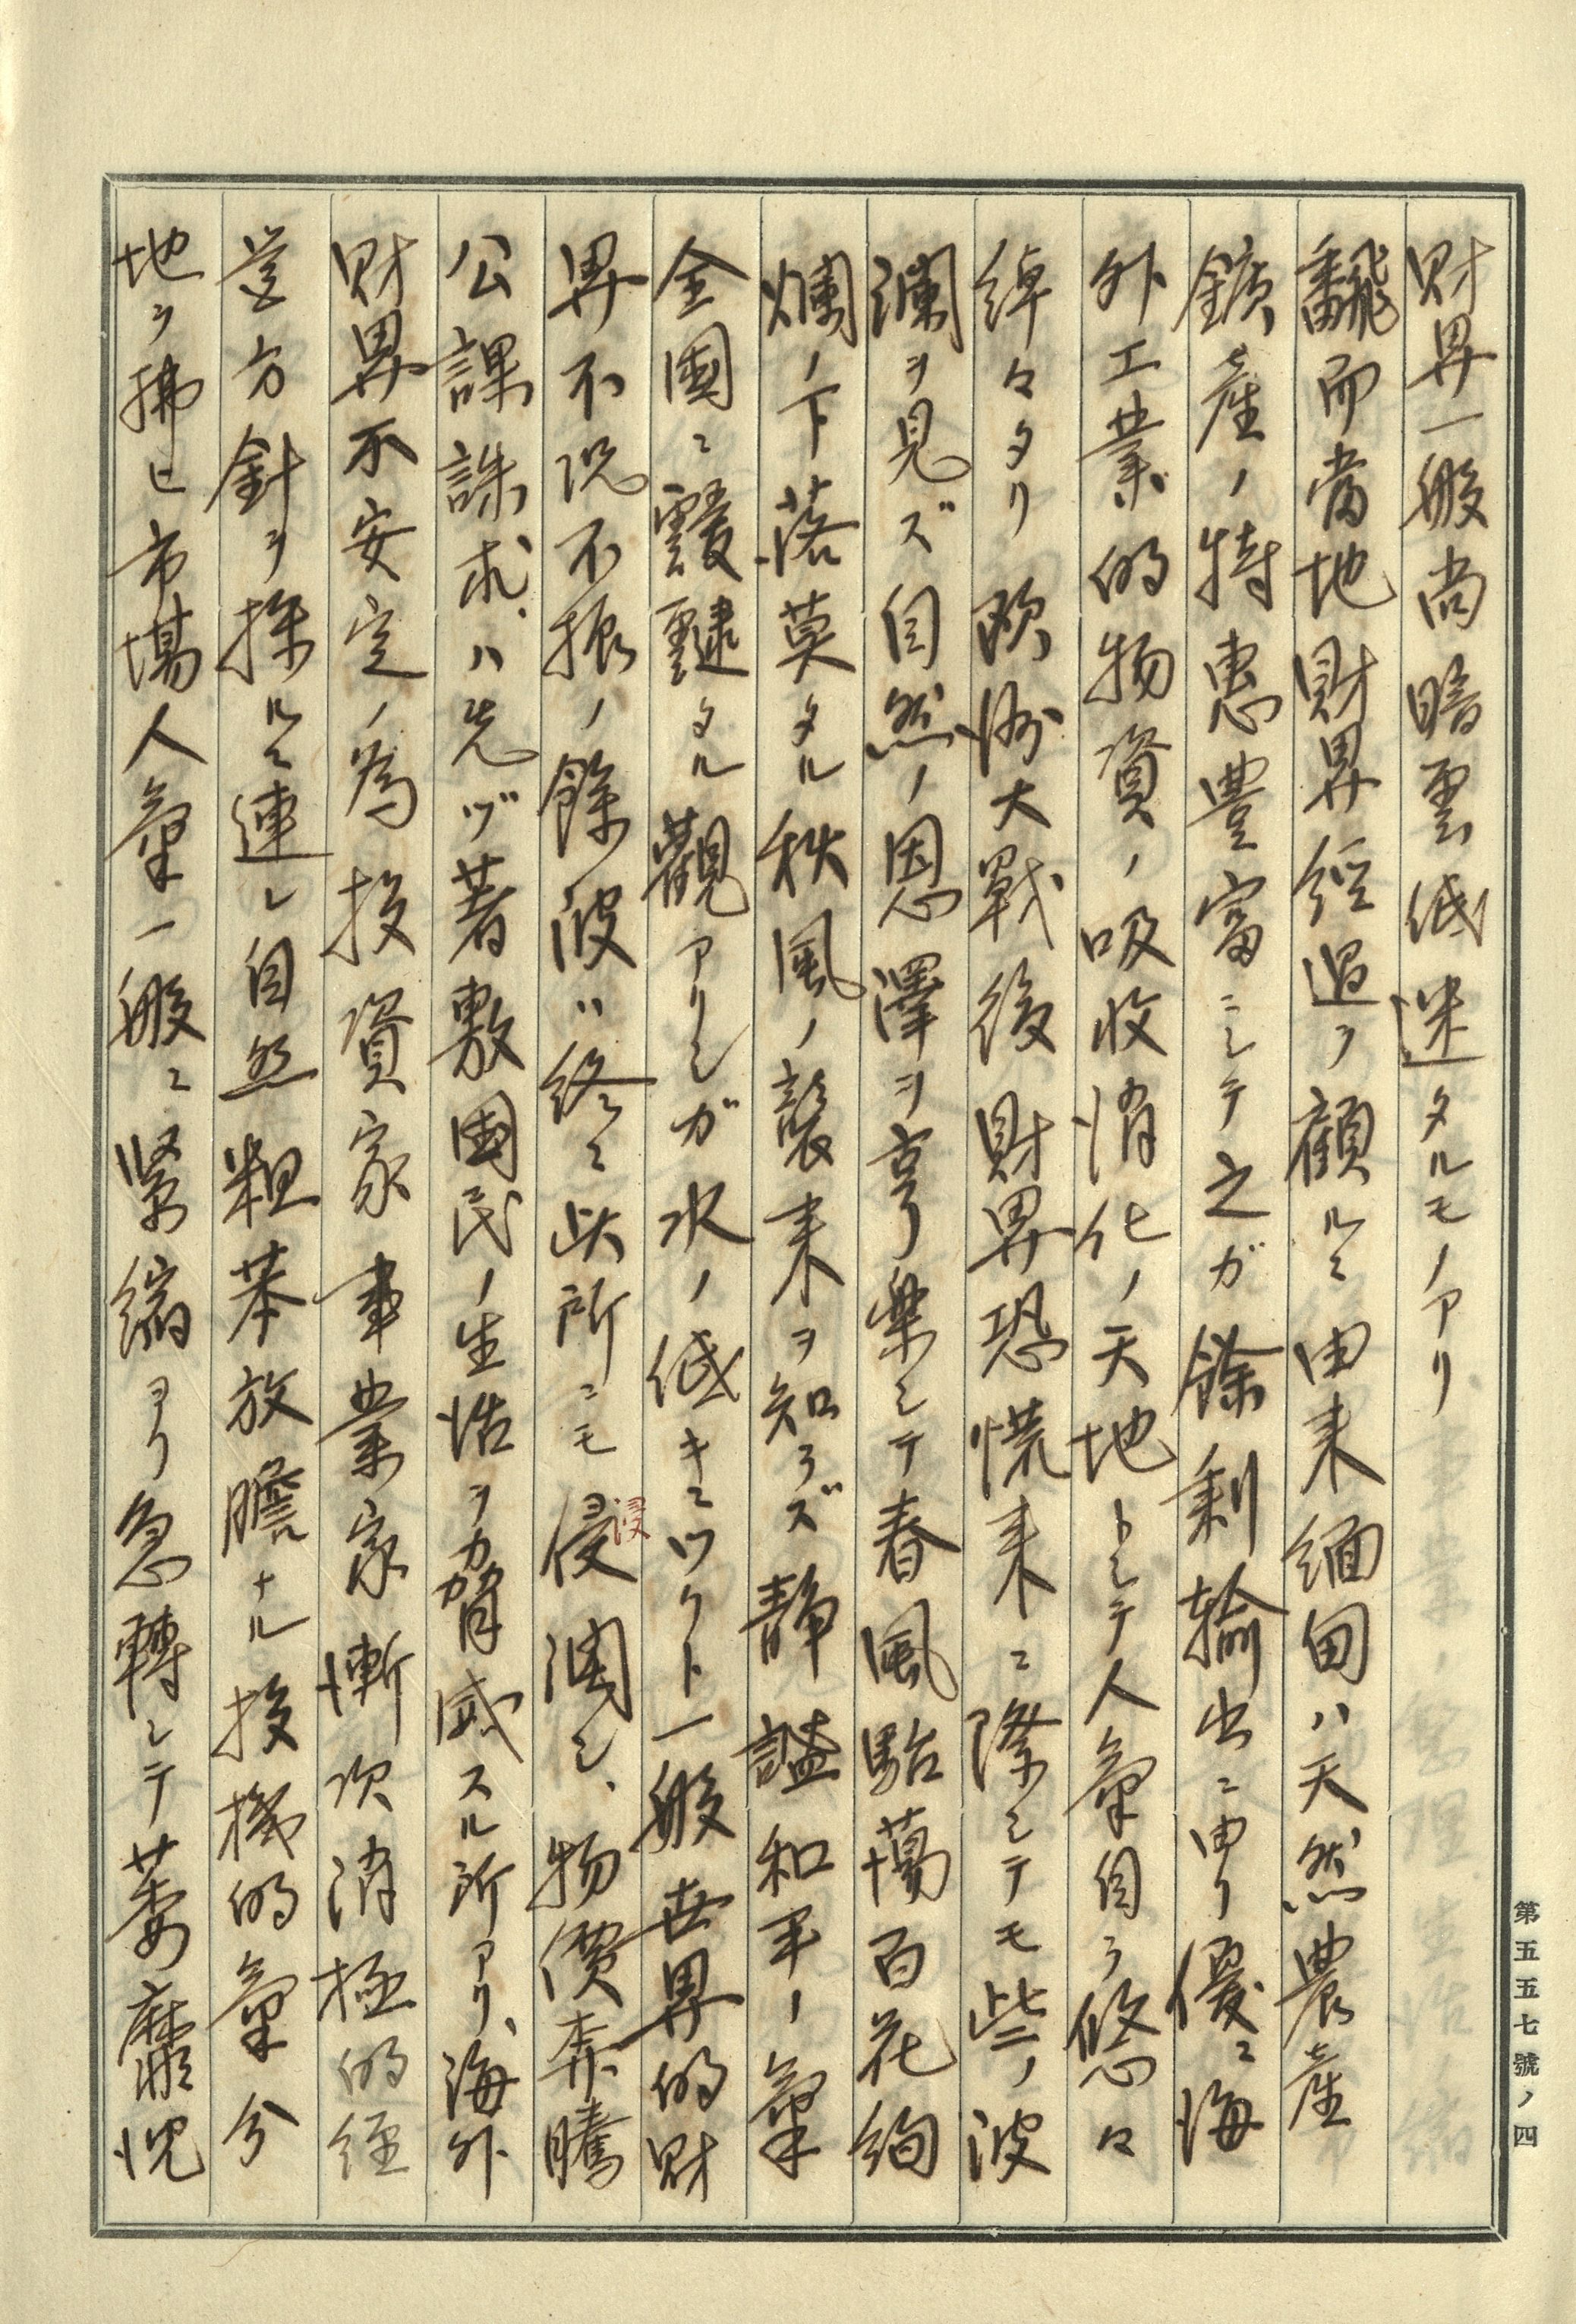 財界一般尚暗雲低迷タルモノアリ
飜而當地財界經過ヲ顧ルニ由来緬甸ハ天然農産
鑛産ノ特惠豊富ニシテ之ガ餘剰輸出ニ由リ優ニ海
外工業的物資ノ吸收消化ノ天地トシテ人氣自ラ悠々
綽々タリ欧洲大戰後財界恐慌来ニ際シテモ些ノ波
瀾ヲ見ズ自然ノ恩澤ヲ享樂シテ春風駘蕩百花絢
爛ノ下落莫タル秋風ノ襲来ヲ知ラズ静謐和平ノ氣
全國ニ靉靆タル觀アリシガ水ノ低キニツクト一般世界的財
界不況不振ノ餘波ハ終ニ此所ニモ侵潤シ、物價奔騰
浸
公課誅求ハ先ヅ著敷國民ノ生活ヲ脅威スル所アリ、海外
財界不安定ノ為投資家事業家漸次消極的經
営方針ヲ採ルニ連レ自然粗笨放膽ナル投機的氣分
地ヲ拂ヒ市場人氣一般ニ緊縮ヨリ急轉シテ萎靡悦
第五五七號ノ四